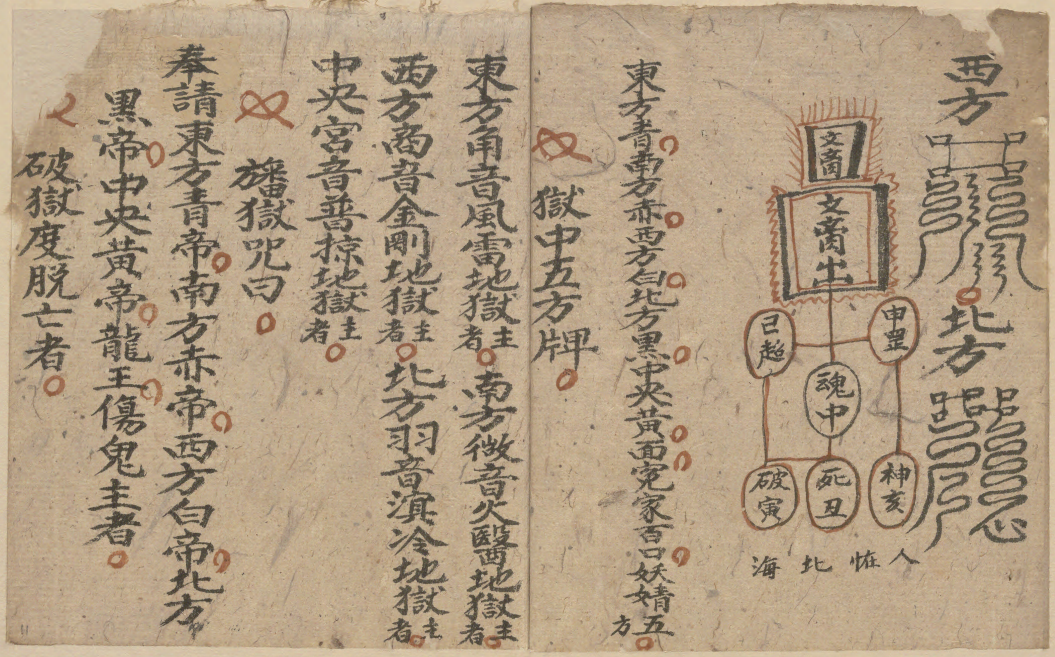 西方
北方
文啇
文啇出
申罡
巳超
魂中
神亥
死丑
破寅
人恠北海
東方青南方赤西方白北方黑中央黃面寃家百口妖婧五方
獄中五方牌
東方角音風雷地獄主者南方徴音火醫地獄主者
西方商音金剛地獄主者北方羽音滇冷地獄主者
中央宮音普掠地獄主者
旛獄咒曰
奉請東方青帝南方赤帝西方白帝北方
黑帝中央黃帝龍王傷鬼主者
破獄度脱亡者